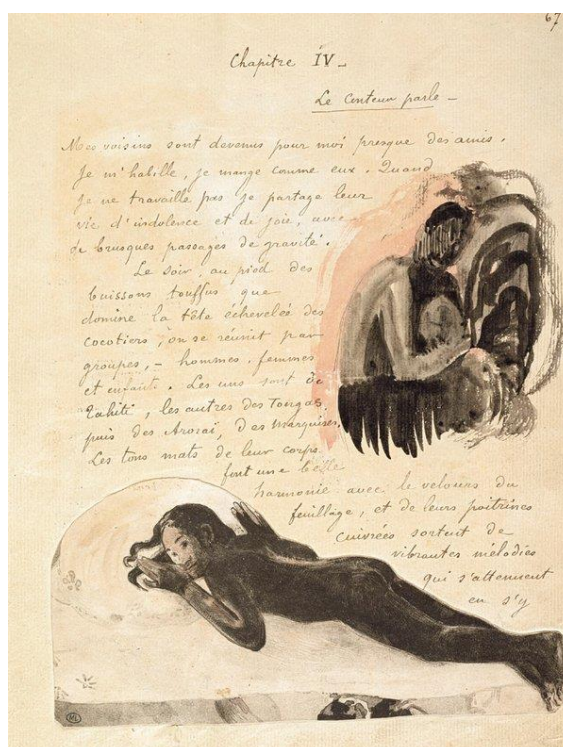 67
Chapitre IV_
Le Conteur parle _
Mes voisins sont devenus pour moi presque des amis.
Je m'habille, je mange comme eux. Quand
je ne travaille pas je partage leur
vie d'indolence et de joie, avec
de brusques passages de gravité.
Le soir, au pied des
buissons touffus que
domine la tête échevelée des
cocotiers, on se réunit par
groupes, – hommes, femmes
et enfants. Les uns sont de
Tahiti, les autres des Tongas,
puis des Arorai, des Marquises.
Les tons mats de leur corps
font une belle
harmonie avec le velours du
feuillage, et de leurs poitrines
cuivrées sortent de
vibrantes mélodies
qui s'attenuent
en s'y